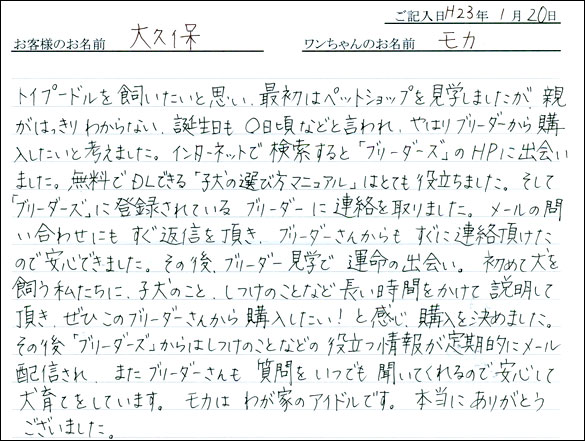 ご記入日H23年 1月20日
お客様のお名前 大久保 ワンちゃんのお名前 モカ
トイプードルを飼いたいと思い、最初はペットショップを見学しましたが、親
がはっきりわからない、誕生日も〇日頃などと言われ、やはりブリーダーから購
入したいと考えました。インターネットで検索すると「ブリーダーズ」のHPに出会い
ました。無料でDLできる「子犬の選び方マニュアル」はとても役立ちました。そして
「ブリーダーズ」に登録されているブリーダーに連絡を取りました。メールの問
い合わせにもすぐ返信を頂き、ブリーダーさんからもすぐに連絡頂けた
ので安心できました。その後、ブリーダー見学で運命の出会い。初めて犬を
飼う私たちに、子犬のこと、しつけのことなど長い時間をかけて説明して
頂き、ぜひこのブリーダーさんから購入したい!と感じ、購入を決めました。
その後「ブリーダーズ」からはしつけのことなどの役立つ情報が定期的にメール
配信され、またブリーダーさんも質問をいつでも聞いてくれるので安心して
犬育てをしています。モカはわが家のアイドルです。本当にありがとう
ございました。